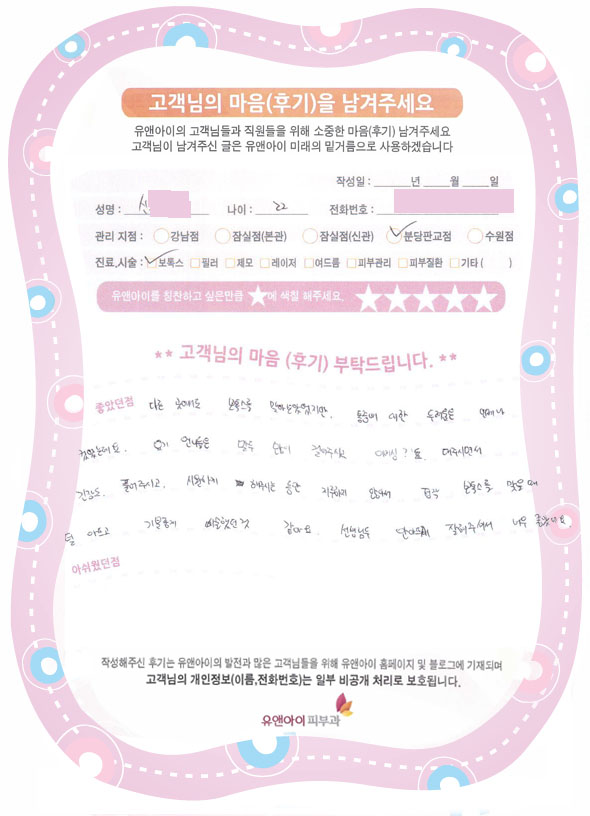 고객님의 마음(후기)을 남겨주세요
유앤아이의 고객님들과 직원들을 위해 소중한 마음(후기) 남겨주세요
고객님이 남겨주신 글은 유앤아이 미래의 밑거름으로 사용하겠습니다
작성일 : 년 월 일
성명 : 신 나이 : 22 전화번호 :
관리 지점 : 강남점 잠실점(본관) 잠실점(신관) 분당판교점 수원점
진료,시술 : 보톡스 필러 제모 레이저 여드름 피부관리 피부질환 기타 ( )
유앤아이를 칭찬하고 싶은만큼 ★에 색칠 해주세요. ★★★★★
** 고객님의 마음 (후기) 부탁드립니다. **
좋았던점 다른 곳에도 보톡스를 통증에 대한 두려움은 언제나
언니들은 손에
긴장도 풀어주시고, 시원하게 해주시는 동안 보톡스를 맞을 때
덜 아프고 기분좋게 같아요. 선생님도 잘해주셔서 너무 좋았어요
아쉬웠던점
작성해주신 후기는 유앤아이의 발전과 많은 고객님들을 위해 유앤아이 홈페이지 및 블로그에 기재되며
고객님의 개인정보(이름,전화번호)는 일부 비공개 처리로 보호됩니다.
유앤아이피부과